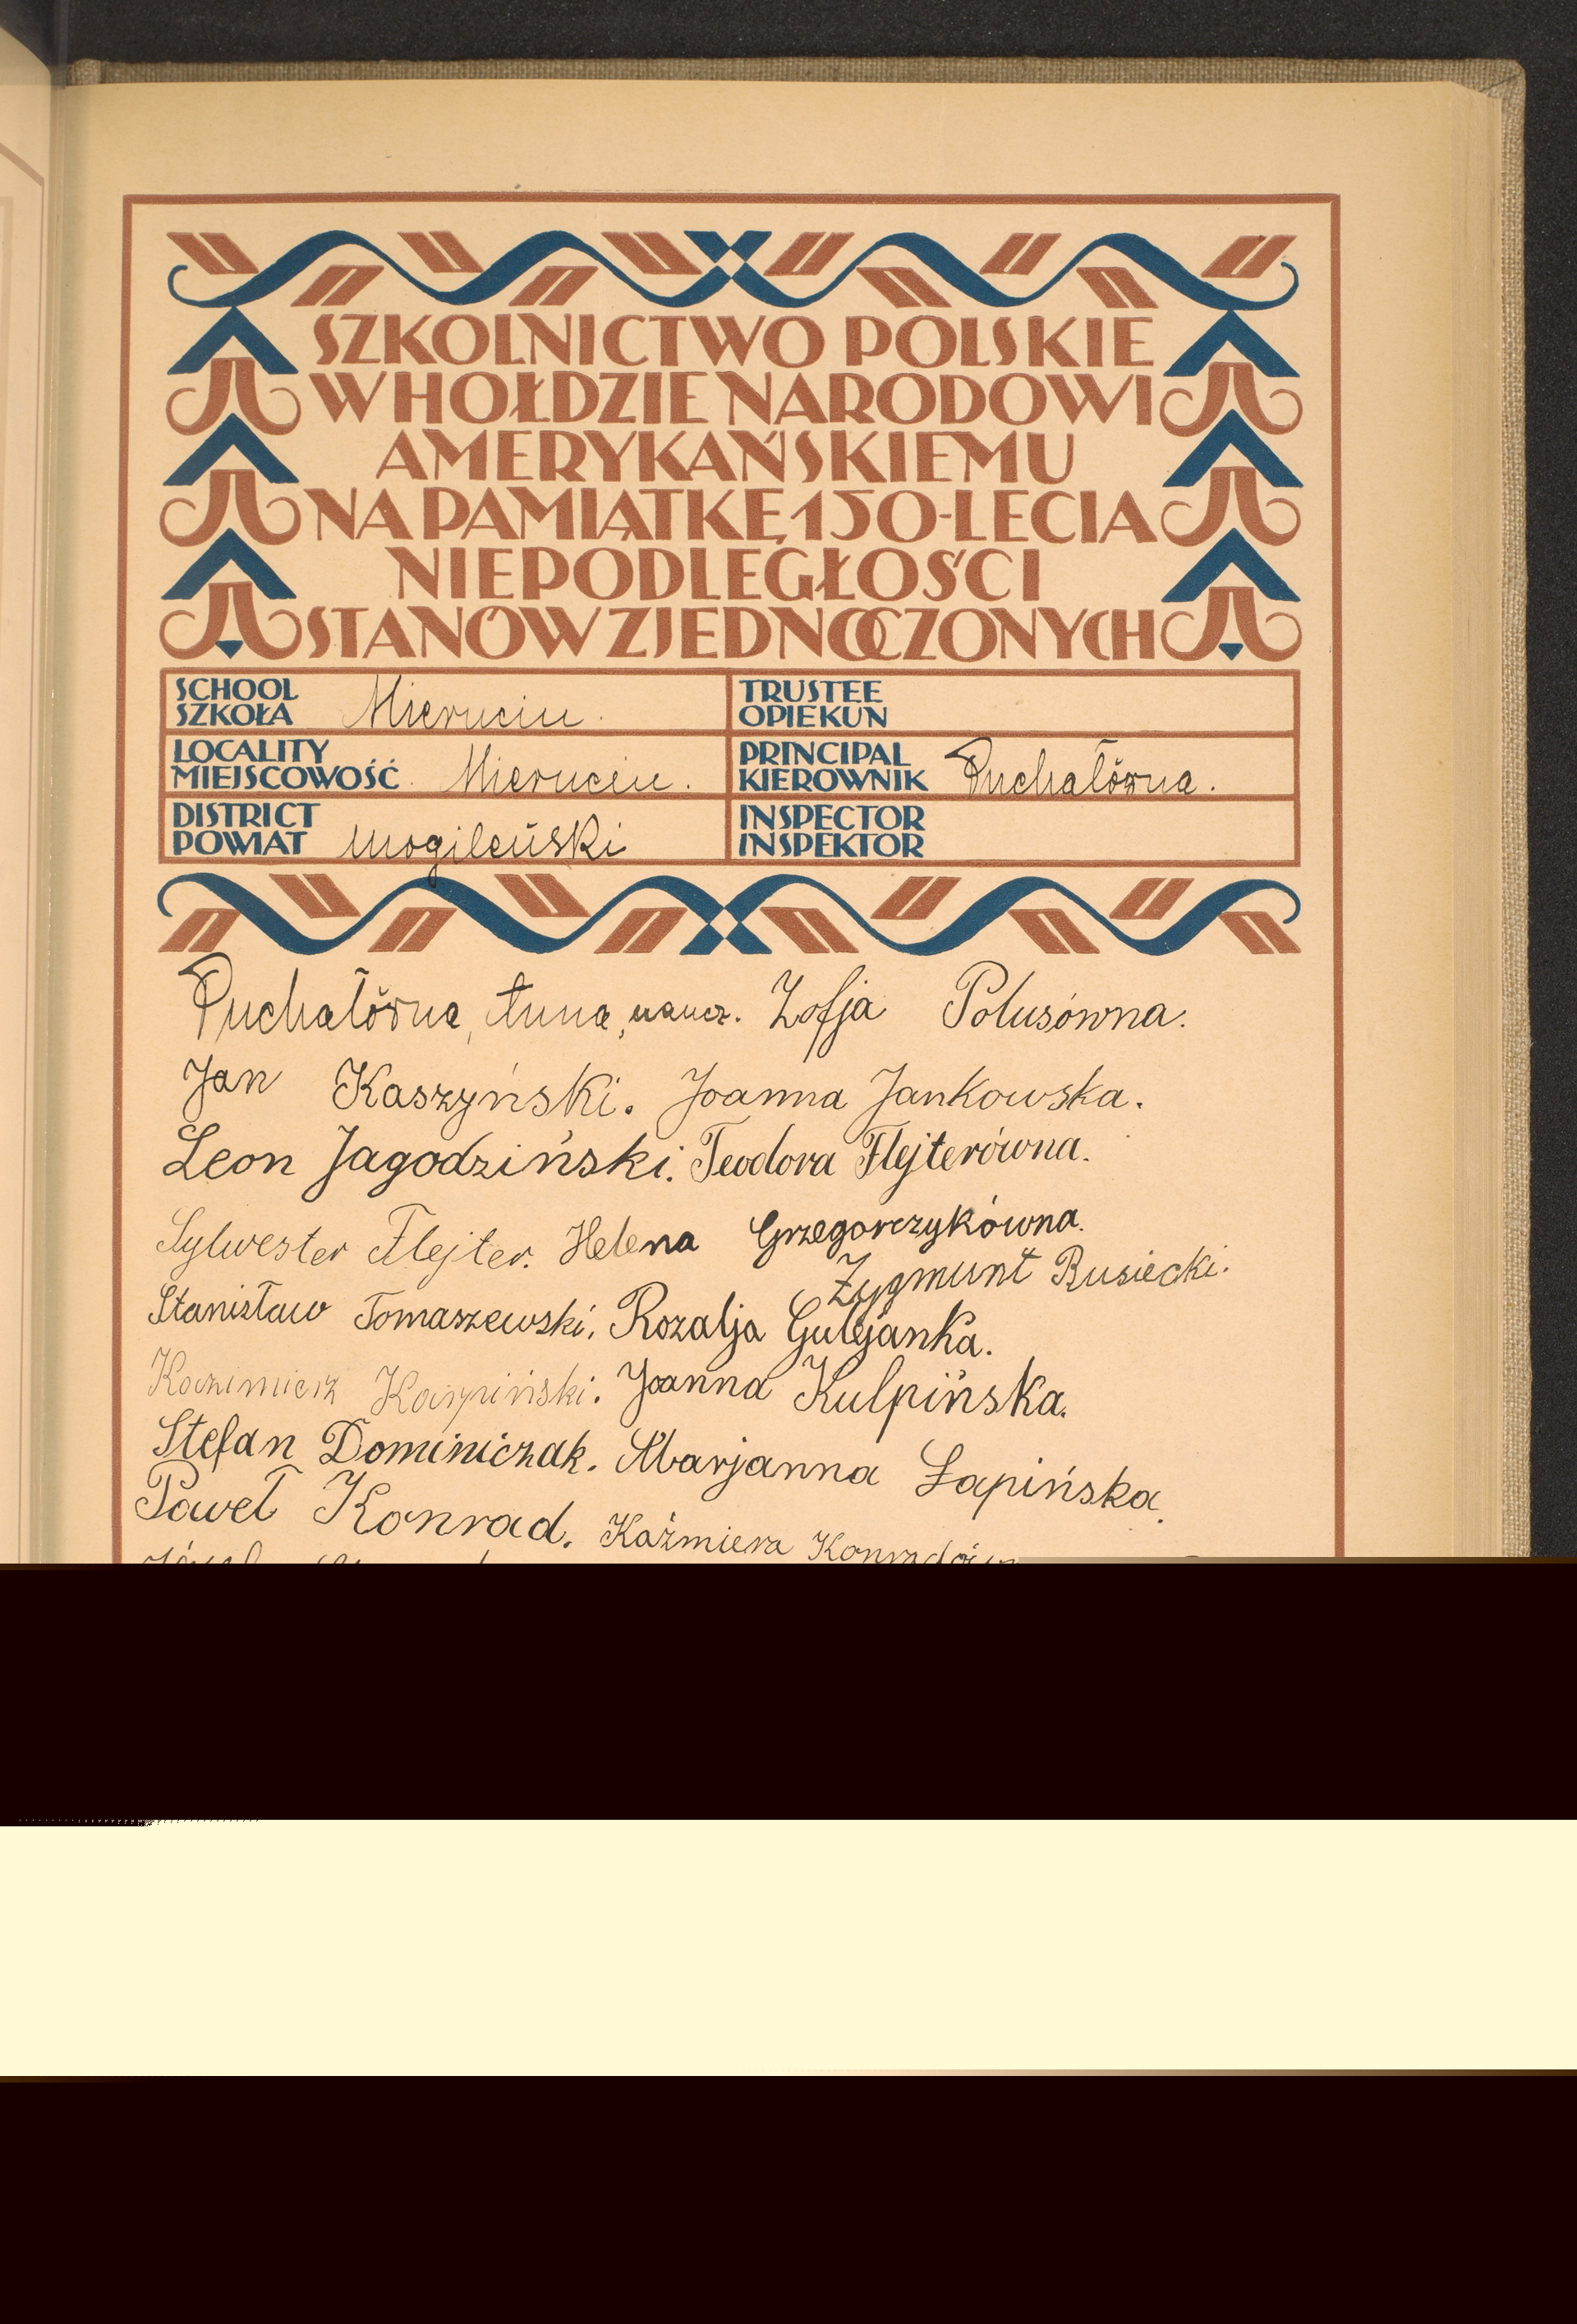 SZKOLNICTWO POLSKIE
W HOŁDZIE NARODOWI
AMERYKAŃSKIEMU
NA PAMIĄTKĘ 150-LECIA
NIEPODLEGŁOŚCI
STANÓW ZJEDNOCZONYCH
SCHOOL
SZKOŁA Mierucin.
TRUSTEE
OPIEKUN
LOCALITY
MIEJSCOWOŚĆ Mierucin.
PRINCIPAL
KIEROWNIK Puchałówna.
DISTRICT
POWIAT mogileński
INSPECTOR
INSPEKTOR
Puchałówna, Anna, naucz. Zofja Polusówna.
Jan Kaszyński. Joanna Jankowska.
Leon Jagodziński. Teodora Flejterówna.
Sylwester Flejter. Helena Grzegorczykówna.
Zygmunt Rusiecki.
Stanisław Tomaszewski. Rozalja Gulejanka.
Kazimierz Karpiński. Joanna Kulpińska.
Stefan Dominiczak. Marjanna Łapińska.
Paweł Konrad. Kaźmiera